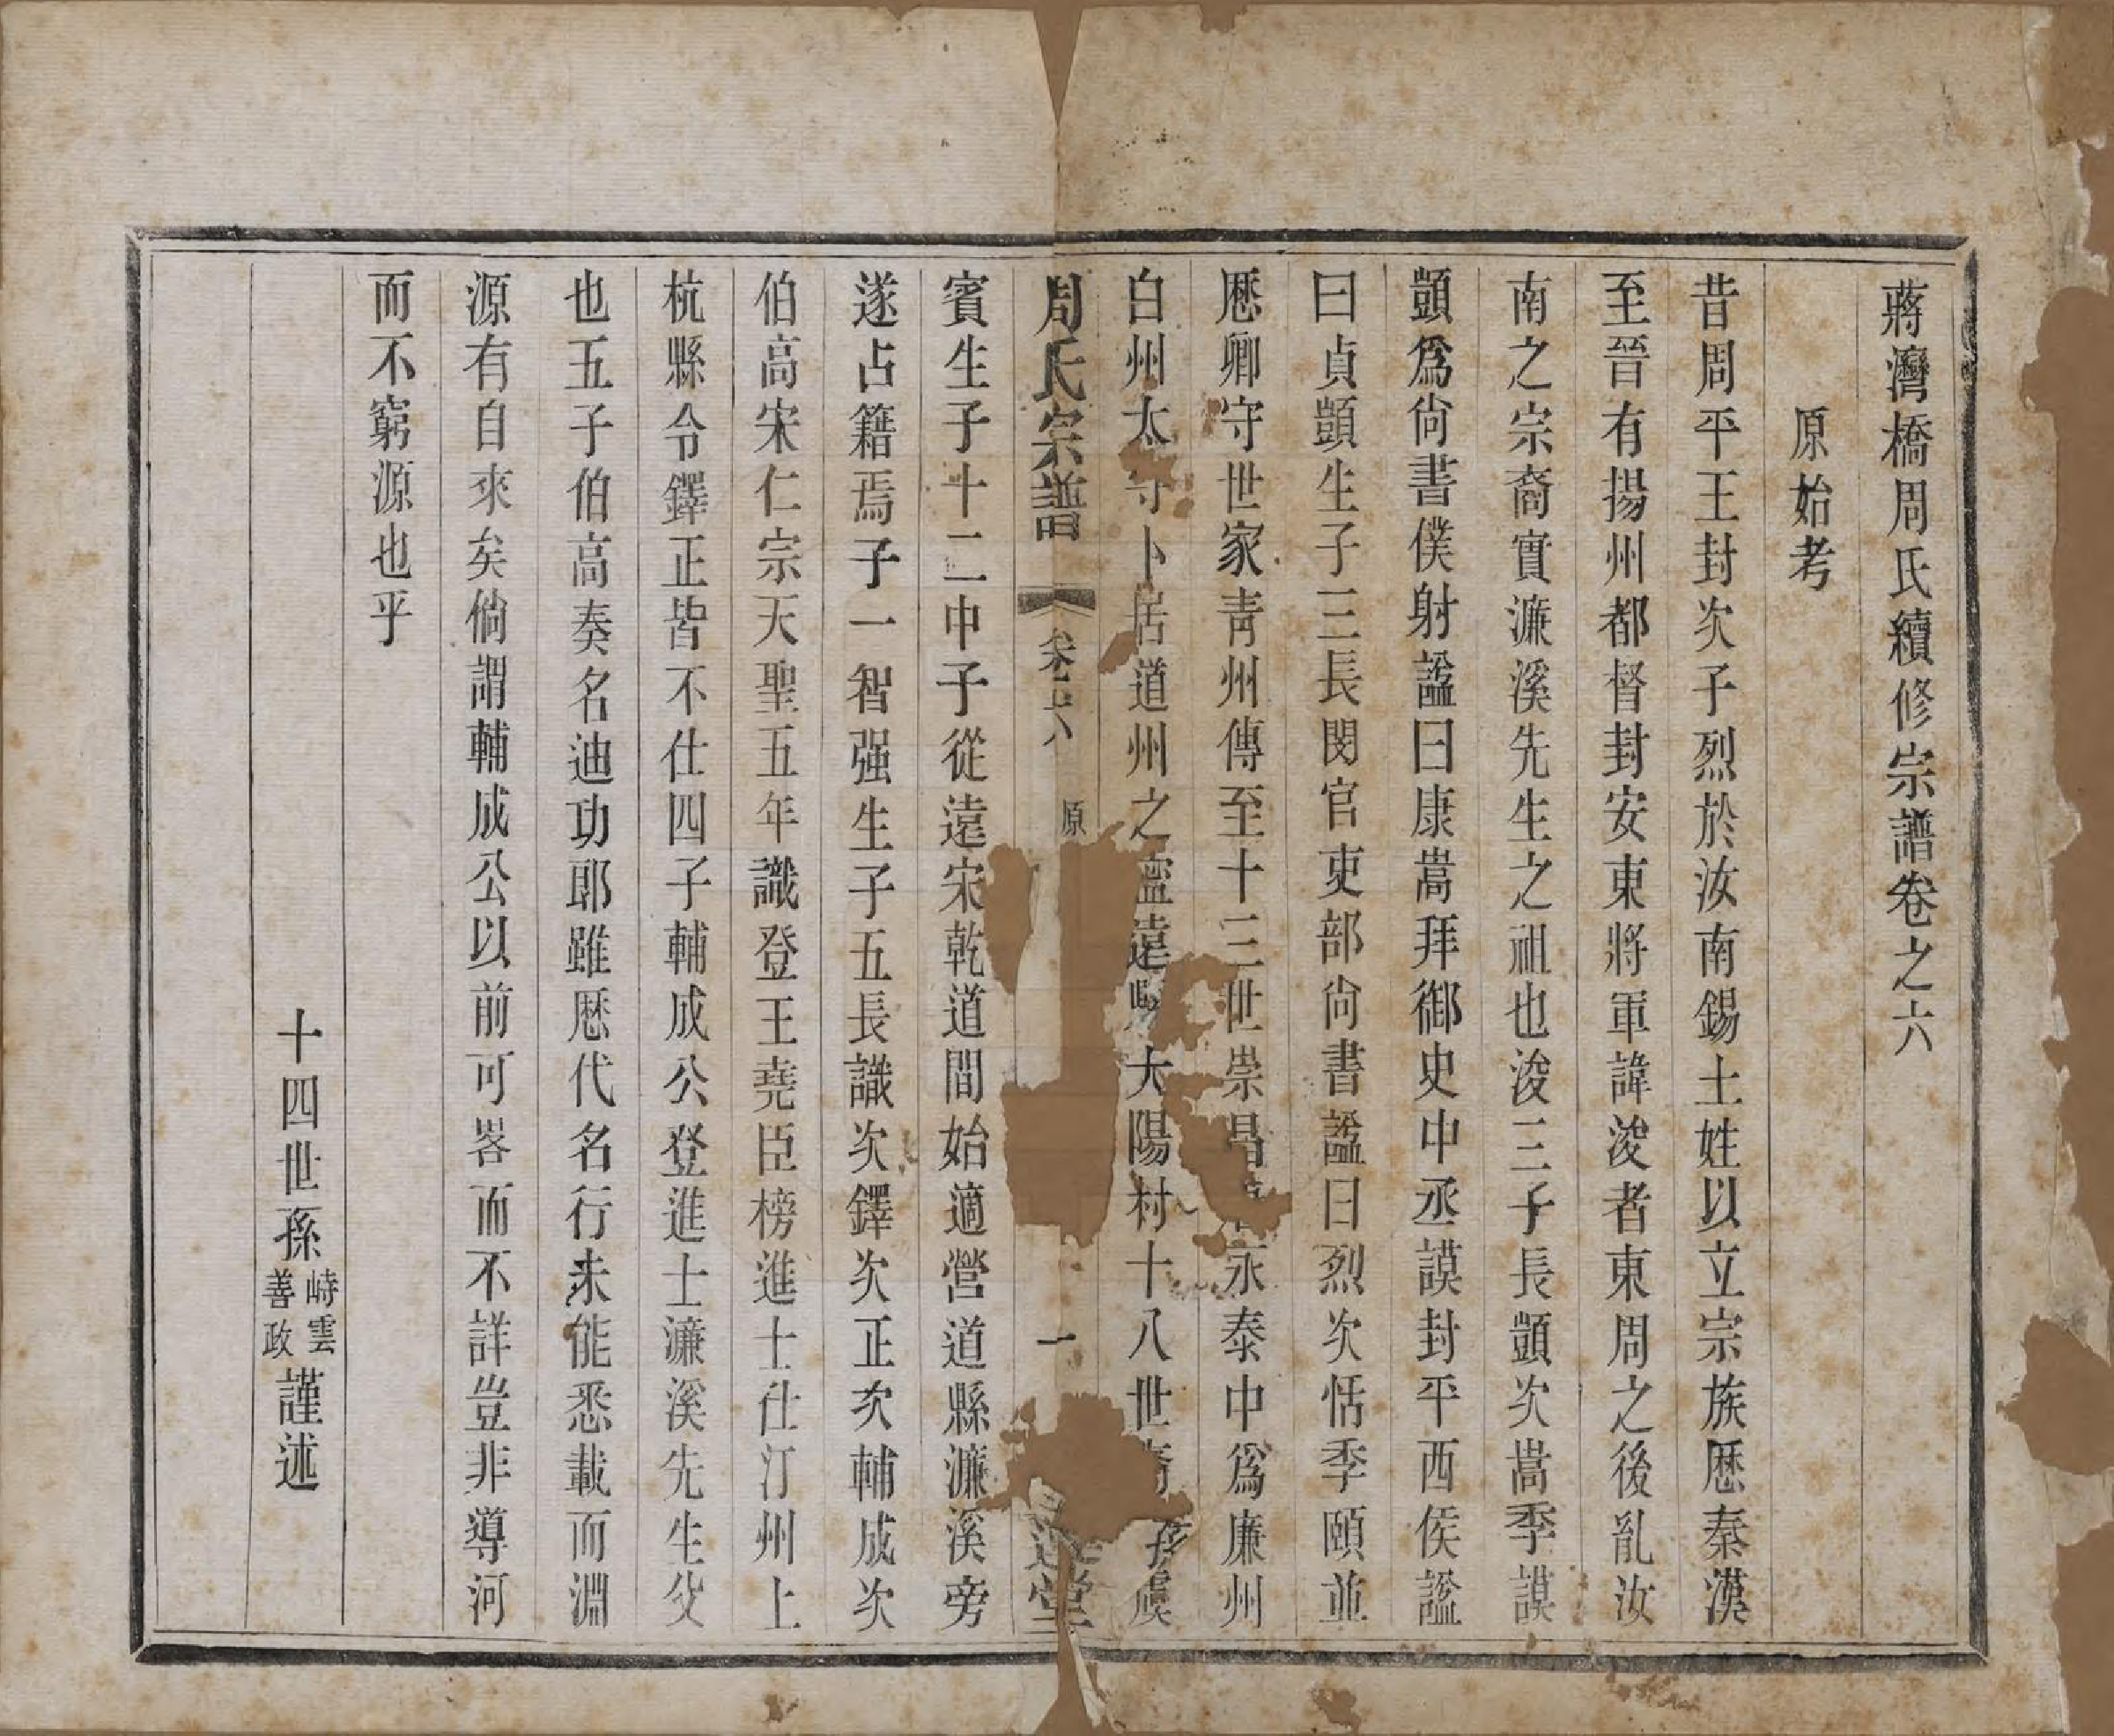 蔣灣橋周氏續修宗譜卷之六
原始考
昔周平王封次子烈於汝南錫土姓以立宗族厯秦漢
至晉有揚州都督封安東將軍諱浚者東周之後亂汝
南之宗裔實濂溪先生之祖也浚三子長顗次嵩季謨
顗爲尙書僕射諡曰康嵩拜御史中丞謨封平西侯諡
曰貞顗生子三長閔官吏部尙書諡曰烈次恬季頤並
厯卿守世家靑州傳至十三世崇昌永泰中爲廉州
白州太守卜居道州之遠大陽村十八世虞
賓生子十二中子從遠宋乾道間始適營道縣濂溪旁
遂占籍焉子一智强生子五長識次鐸次正次輔成次
伯高宋仁宗天聖五年識登王堯臣榜進士仕汀州上
杭縣令鐸正皆不仕四子輔成公登進士濂溪先生父
也五子伯高奏名迪功郎雖厯代名行未能悉載而淵
源有自來矣倘謂輔成公以前可畧而不詳豈非導河
而不窮源也乎
十四世孫峙雲善政謹述
周氏宗譜 卷之六 原 一 堂